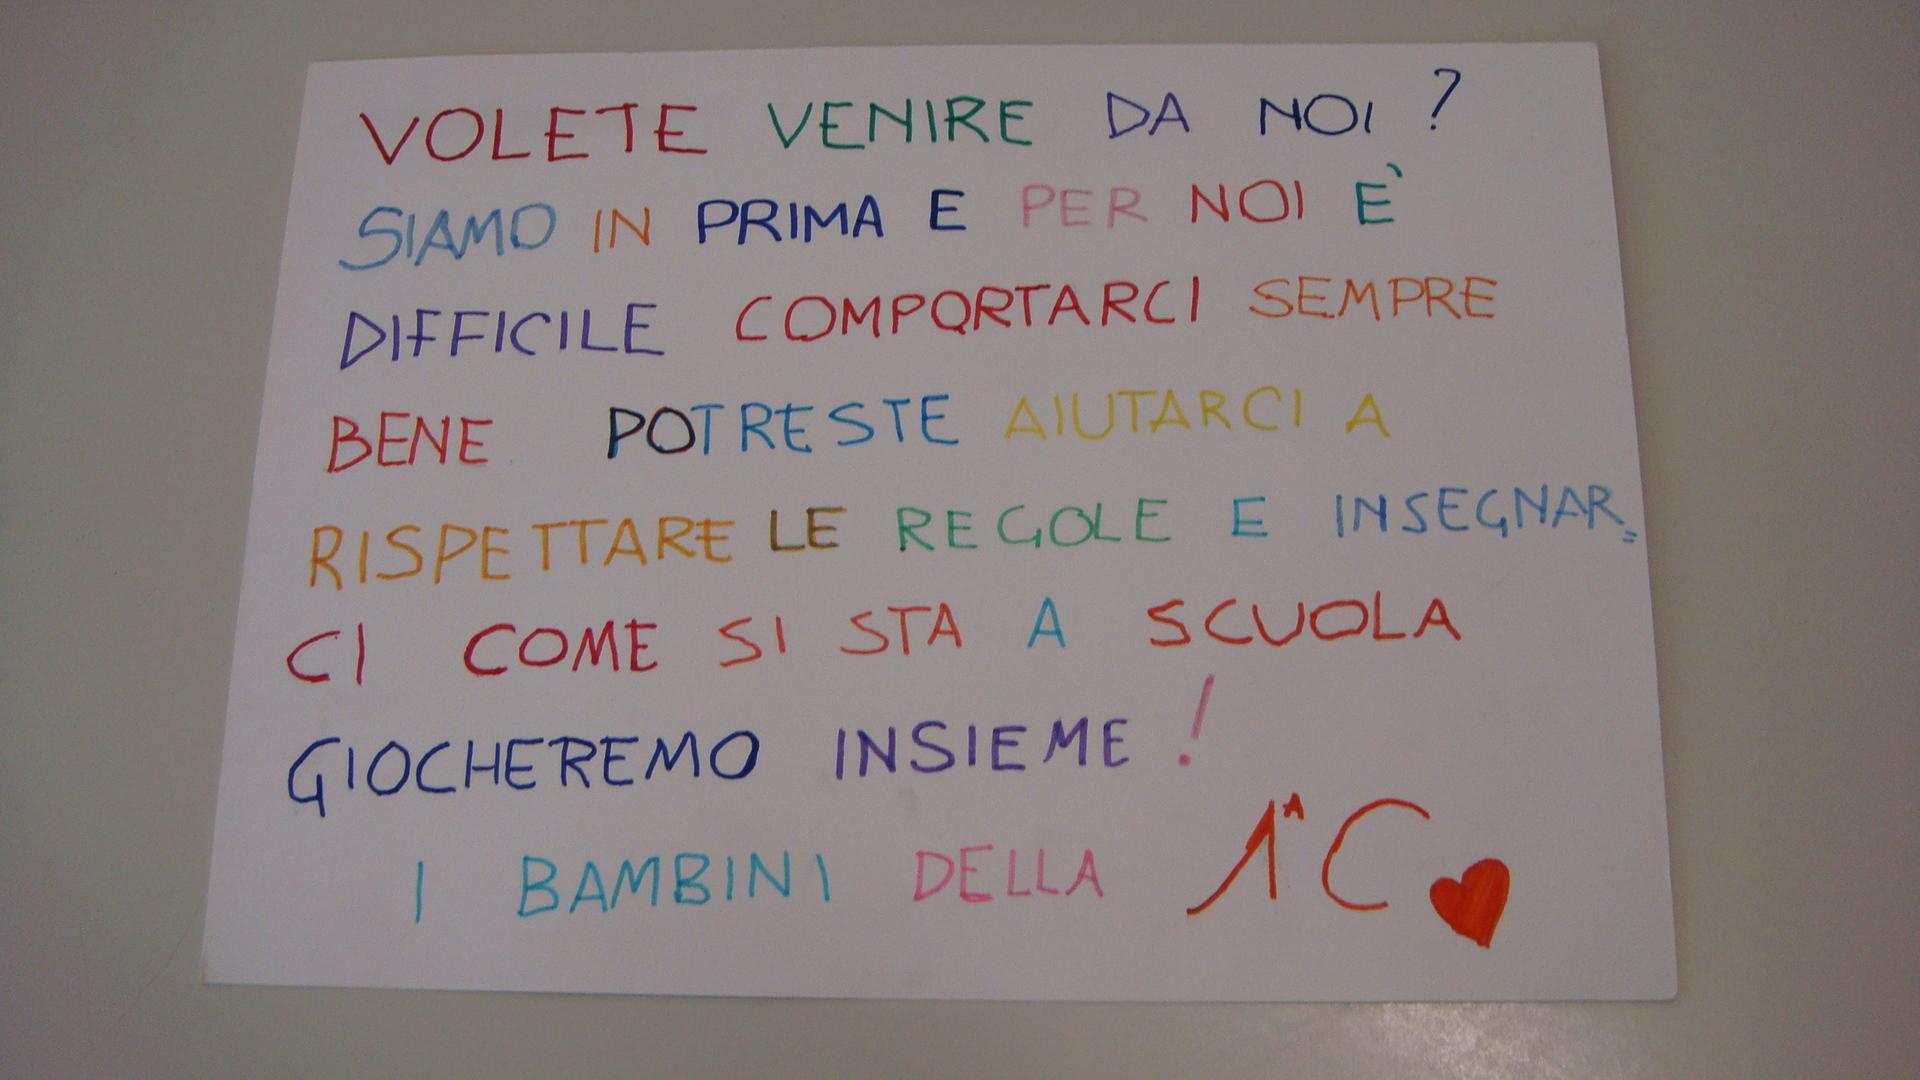 VOLETE VENIRE DA NOI ?
SIAMO IN PRIMA E PER NOI E'
DIFFICILE COMPORTARCI SEMPRE
BENE POTRESTE AIUTARCI A
RISPETTARE LE REGOLE E INSEGNAR=
CI COME SI STA A SCUOLA
GIOCHEREMO INSIEME !
I BAMBINI DELLA 1ᴬ C